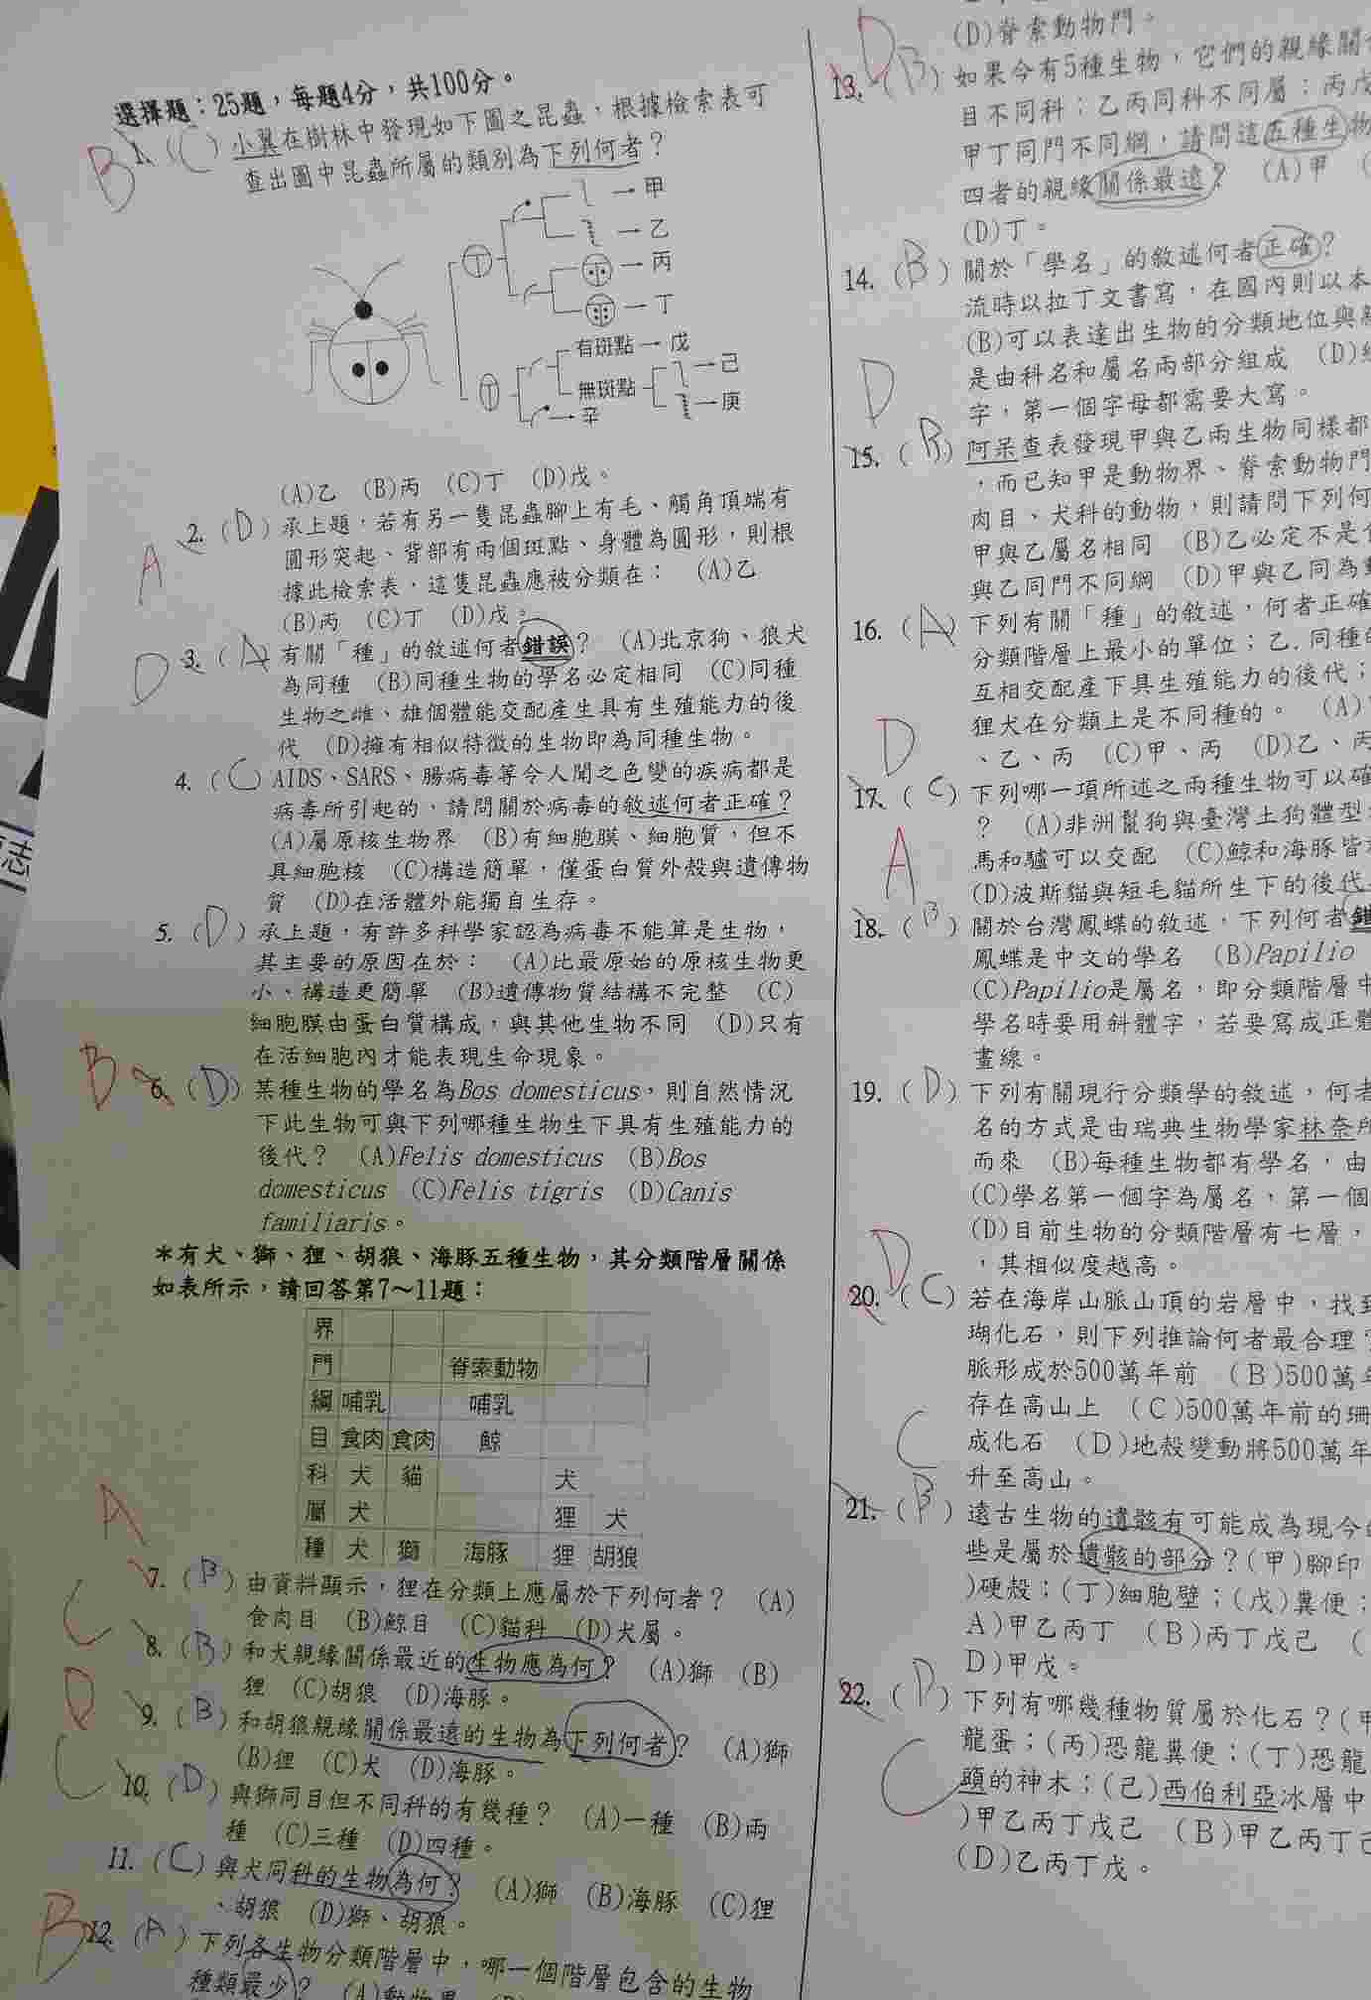 選擇題：25題，每題4分，共100分。
B 1. (C) 小翼在樹林中發現如下圖之昆蟲，根據檢索表可
查出圖中昆蟲所屬的類別為下列何者？
甲
乙
丙
丁
有斑點 戊
己
無斑點
庚
辛
(A)乙 (B)丙 (C)丁 (D)戊。
A 2. (D) 承上題，若有另一隻昆蟲腳上有毛、觸角頂端有
圓形突起、背部有兩個斑點、身體為圓形，則根
據此檢索表，這隻昆蟲應被分類在： (A)乙
(B)丙 (C)丁 (D)戊。
D 3. (A) 有關「種」的敘述何者錯誤？ (A)北京狗、狼犬
為同種 (B)同種生物的學名必定相同 (C)同種
生物之雌、雄個體能交配產生具有生殖能力的後
代 (D)擁有相似特徵的生物即為同種生物。
4. (C) AIDS、SARS、腸病毒等令人聞之色變的疾病都是
病毒所引起的，請問關於病毒的敘述何者正確？
(A)屬原核生物界 (B)有細胞膜、細胞質，但不
具細胞核 (C)構造簡單，僅蛋白質外殼與遺傳物
質 (D)在活體外能獨自生存。
5. (D) 承上題，有許多科學家認為病毒不能算是生物，
其主要的原因在於： (A)比最原始的原核生物更
小、構造更簡單 (B)遺傳物質結構不完整 (C)
細胞膜由蛋白質構成，與其他生物不同 (D)只有
在活細胞內才能表現生命現象。
B 6. (D) 某種生物的學名為Bos domesticus，則自然情況
下此生物可與下列哪種生物生下具有生殖能力的
後代？ (A)Felis domesticus (B)Bos
domesticus (C)Felis tigris (D)Canis
familiaris。
＊有犬、獅、狸、胡狼、海豚五種生物，其分類階層關係
如表所示，請回答第7～11題：
界
門 脊索動物
綱 哺乳 哺乳
目 食肉 食肉 鯨
科 犬 貓 犬
屬 犬 狸 犬
種 犬 獅 海豚 狸 胡狼
A 7. (B) 由資料顯示，狸在分類上應屬於下列何者？ (A)
食肉目 (B)鯨目 (C)貓科 (D)犬屬。
C 8. (B) 和犬親緣關係最近的生物應為何？ (A)獅 (B)
狸 (C)胡狼 (D)海豚。
D 9. (B) 和胡狼親緣關係最遠的生物為下列何者？ (A)獅
(B)狸 (C)犬 (D)海豚。
C 10. (D) 與獅同目但不同科的有幾種？ (A)一種 (B)兩
種 (C)三種 (D)四種。
11. (C) 與犬同科的生物為何？ (A)獅 (B)海豚 (C)狸
、胡狼 (D)獅、胡狼。
B 12. (A) 下列各生物分類階層中，哪一個階層包含的生物
種類最少？ (A)動物界
(D)脊索動物門。
D 13. (B) 如果今有5種生物，它們的親緣關
目不同科；乙丙同科不同屬；丙戊
甲丁同門不同綱，請問這五種生物
四者的親緣關係最遠？ (A)甲
(D)丁。
14. (B) 關於「學名」的敘述何者正確？
流時以拉丁文書寫，在國內則以本
(B)可以表達出生物的分類地位與
是由科名和屬名兩部分組成 (D)
字，第一個字母都需要大寫。
D 15. (B) 阿呆查表發現甲與乙兩生物同樣都
，而已知甲是動物界、脊索動物門
肉目、犬科的動物，則請問下列何
甲與乙屬名相同 (B)乙必定不是
與乙同門不同綱 (D)甲與乙同為
16. (A) 下列有關「種」的敘述，何者正確
分類階層上最小的單位；乙.同種
互相交配產下具生殖能力的後代；
狸犬在分類上是不同種的。 (A)
、乙、丙 (C)甲、丙 (D)乙、丙
D 17. (C) 下列哪一項所述之兩種生物可以確
？ (A)非洲鬣狗與臺灣土狗體型
馬和驢可以交配 (C)鯨和海豚皆
(D)波斯貓與短毛貓所生下的後代
A 18. (B) 關於台灣鳳蝶的敘述，下列何者
鳳蝶是中文的學名 (B)Papilio
(C)Papilio是屬名，即分類階層中
學名時要用斜體字，若要寫成正體
畫線。
19. (D) 下列有關現行分類學的敘述，何者
名的方式是由瑞典生物學家林奈所
而來 (B)每種生物都有學名，由
(C)學名第一個字為屬名，第一個
(D)目前生物的分類階層有七層，
，其相似度越高。
D 20. (C) 若在海岸山脈山頂的岩層中，找到
瑚化石，則下列推論何者最合理？
脈形成於500萬年前 (B)500萬年
存在高山上 (C)500萬年前的珊
成化石 (D)地殼變動將500萬年
升至高山。
C 21. (B) 遠古生物的遺骸有可能成為現今
些是屬於遺骸的部分？(甲)腳印
)硬殼；(丁)細胞壁；(戊)糞便；
A)甲乙丙丁 (B)丙丁戊己 (
D)甲戊。
22. (D) 下列有哪幾種物質屬於化石？(甲
龍蛋；(丙)恐龍糞便；(丁)恐龍
C 頭的神木；(己)西伯利亞冰層中
)甲乙丙丁戊己 (B)甲乙丙丁己
(D)乙丙丁戊。
志